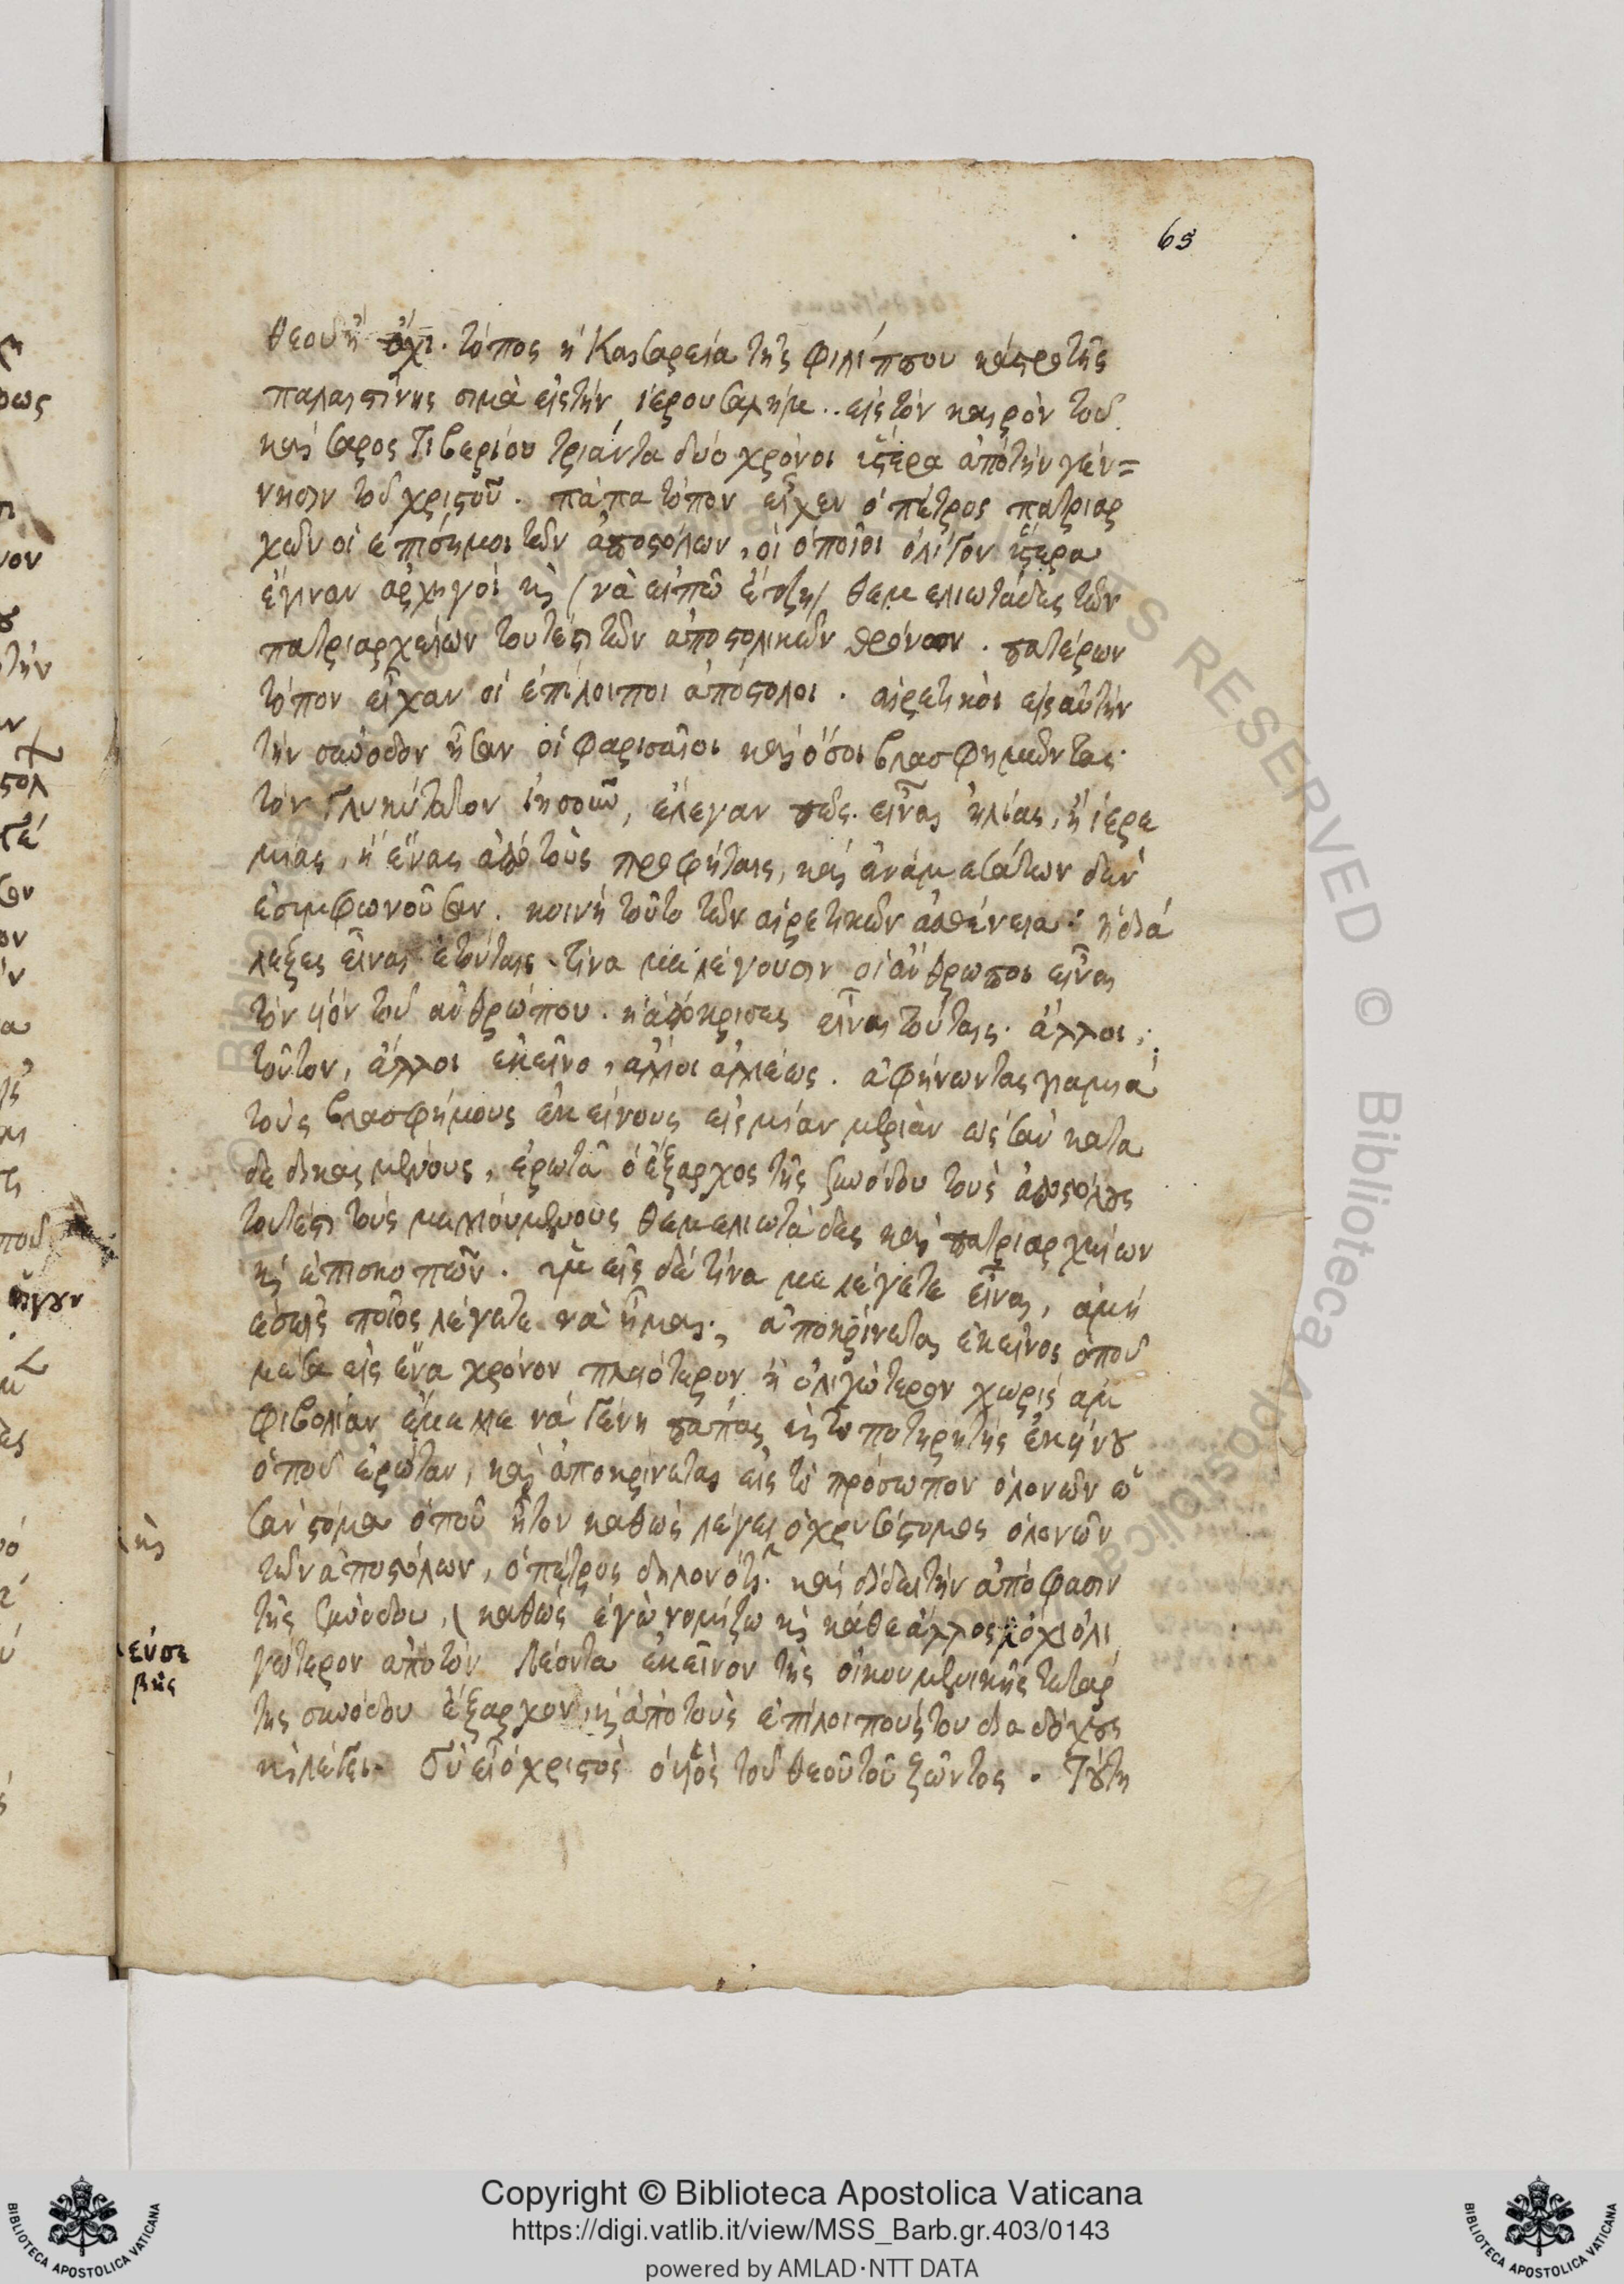 65
θεοῦ ἢ ὄχι. τόπος ἡ Καισαρεία τῆς φιλίππου καίσρο τῆς
παλαιστίνης σιμὰ εἰς τὴν ἱερουσαλήμ.. εἰς τὸν καιρὸν τοῦ
καίσαρος Τιβερίου τριάντα δύο χρόνοι ὕστερα ἀπὸ τὴν γέν=
νησιν τοῦ χριστοῦ. πάπα τόπον εἶχεν ὁ πέτρος πατριαρ
χῶν οἱ ἐπίσημοι τῶν ἀποστόλων, οἱ ὁποῖοι ὀλίγον ὕστερα
ἔγιναν ἀρχηγοὶ κὶ (νὰ εἰπῶ ἔτζη) θεμελιωτάδες τῶν
πατριαρχείων τουτέστι τῶν ἀποστολικῶν θρόνων. πατέρων
τόπον εἶχαν οἱ ἐπίλοιποι ἀπόστολοι. αἱρετικοὶ εἰς αὐτὴν
τὴν σύνοδον ἦσαν οἱ φαρισαῖοι καὶ ὅσοι βλασφημῶντας
τὸν γλυκύτατον ἰησοῦν, ἔλεγαν πῶς εἶναι ἠλίας, ἢ ἱερε
μίας, ἢ ἕνας ἀπὸ τοὺς προφήταις, καὶ ἀνάμεσά των δὲν
ἐσυμφωνοῦσαν. κοινὴ τοῦτο τῶν αἱρετικῶν ἀσθένεια· ἡ διά
λεξες εἶναι ἐτούταις. τίνα με λέγουσιν οἱ ἄνθρωποι εἶναι
τὸν υἱὸν τοῦ ἀνθρώπου. ἡ ἀπόκρισες εἶναι τούταις. ἄλλοι
τοῦτον, ἄλλοι ἐκεῖνο, ἄλλοι ἀλλέως. ἀφήνωντας γιαμιὰ
τοὺς βλασφήμους ἐκείνους εἰς μίαν μεριὰν ὡς σὰν κατα
δεδικασμένους, ἐρωτᾶ ὁ ἔξαρχος τῆς συνόδου τοὺς ἀποστόλους
τουτέστι τοὺς μελλούμενους θεμελιωτάδες καὶ πατριαρχείων
κὶ ἐπισκοπῶν. ὑμεῖς δὲ τίνα με λέγετε εἶναι, ἀμὴ
ἐσεῖς ποῖος λέγετε νὰ ἦμαι; ἀποκρίνεται ἐκεῖνος ὁποῦ
μέσα εἰς ἕνα χρόνον πλειότερον ἢ ὀλιγώτερον χωρὶς ἀμ
φιβολίαν ἔμελλε νὰ γένη πάπας κὶ τοποτηρητὴς ἐκείνου
ὁποῦ ἐρώταν, καὶ ἀποκρίνεται εἰς τὸ πρόσωπον ὁλονῶν ὡ
σὰν στόμα ὁποῦ ἦτον καθὼς λέγει ὁ χρυσόστομος ὁλονῶν
τῶν ἀποστόλων, ὁ πέτρος δηλονότι. καὶ δίδει τὴν ἀπόφασιν
τῆς συνόδου, (καθὼς ἐγὼ νομίζω κὶ κάθε ἄλλος) ὄχι ὀλι
γώτερον ἀπὸ τὸν Λέοντα ἐκεῖνον τῆς οἰκουμενικῆς τετάρ
της συνόδου ἔξαρχον, κὶ ἀπὸ τοὺς ἐπίλοιπούς του διαδόχους
κὶ λέγει. Σὺ εἶ ὁ χριστὸς ὁ υἱὸς τοῦ θεοῦ τοῦ ζῶντος. Τούτη
κὶ
εὐσε
βὴς
Copyright © Biblioteca Apostolica Vaticana
https://digi.vatlib.it/view/MSS_Barb.gr.403/0143
powered by AMLAD·NTT DATA